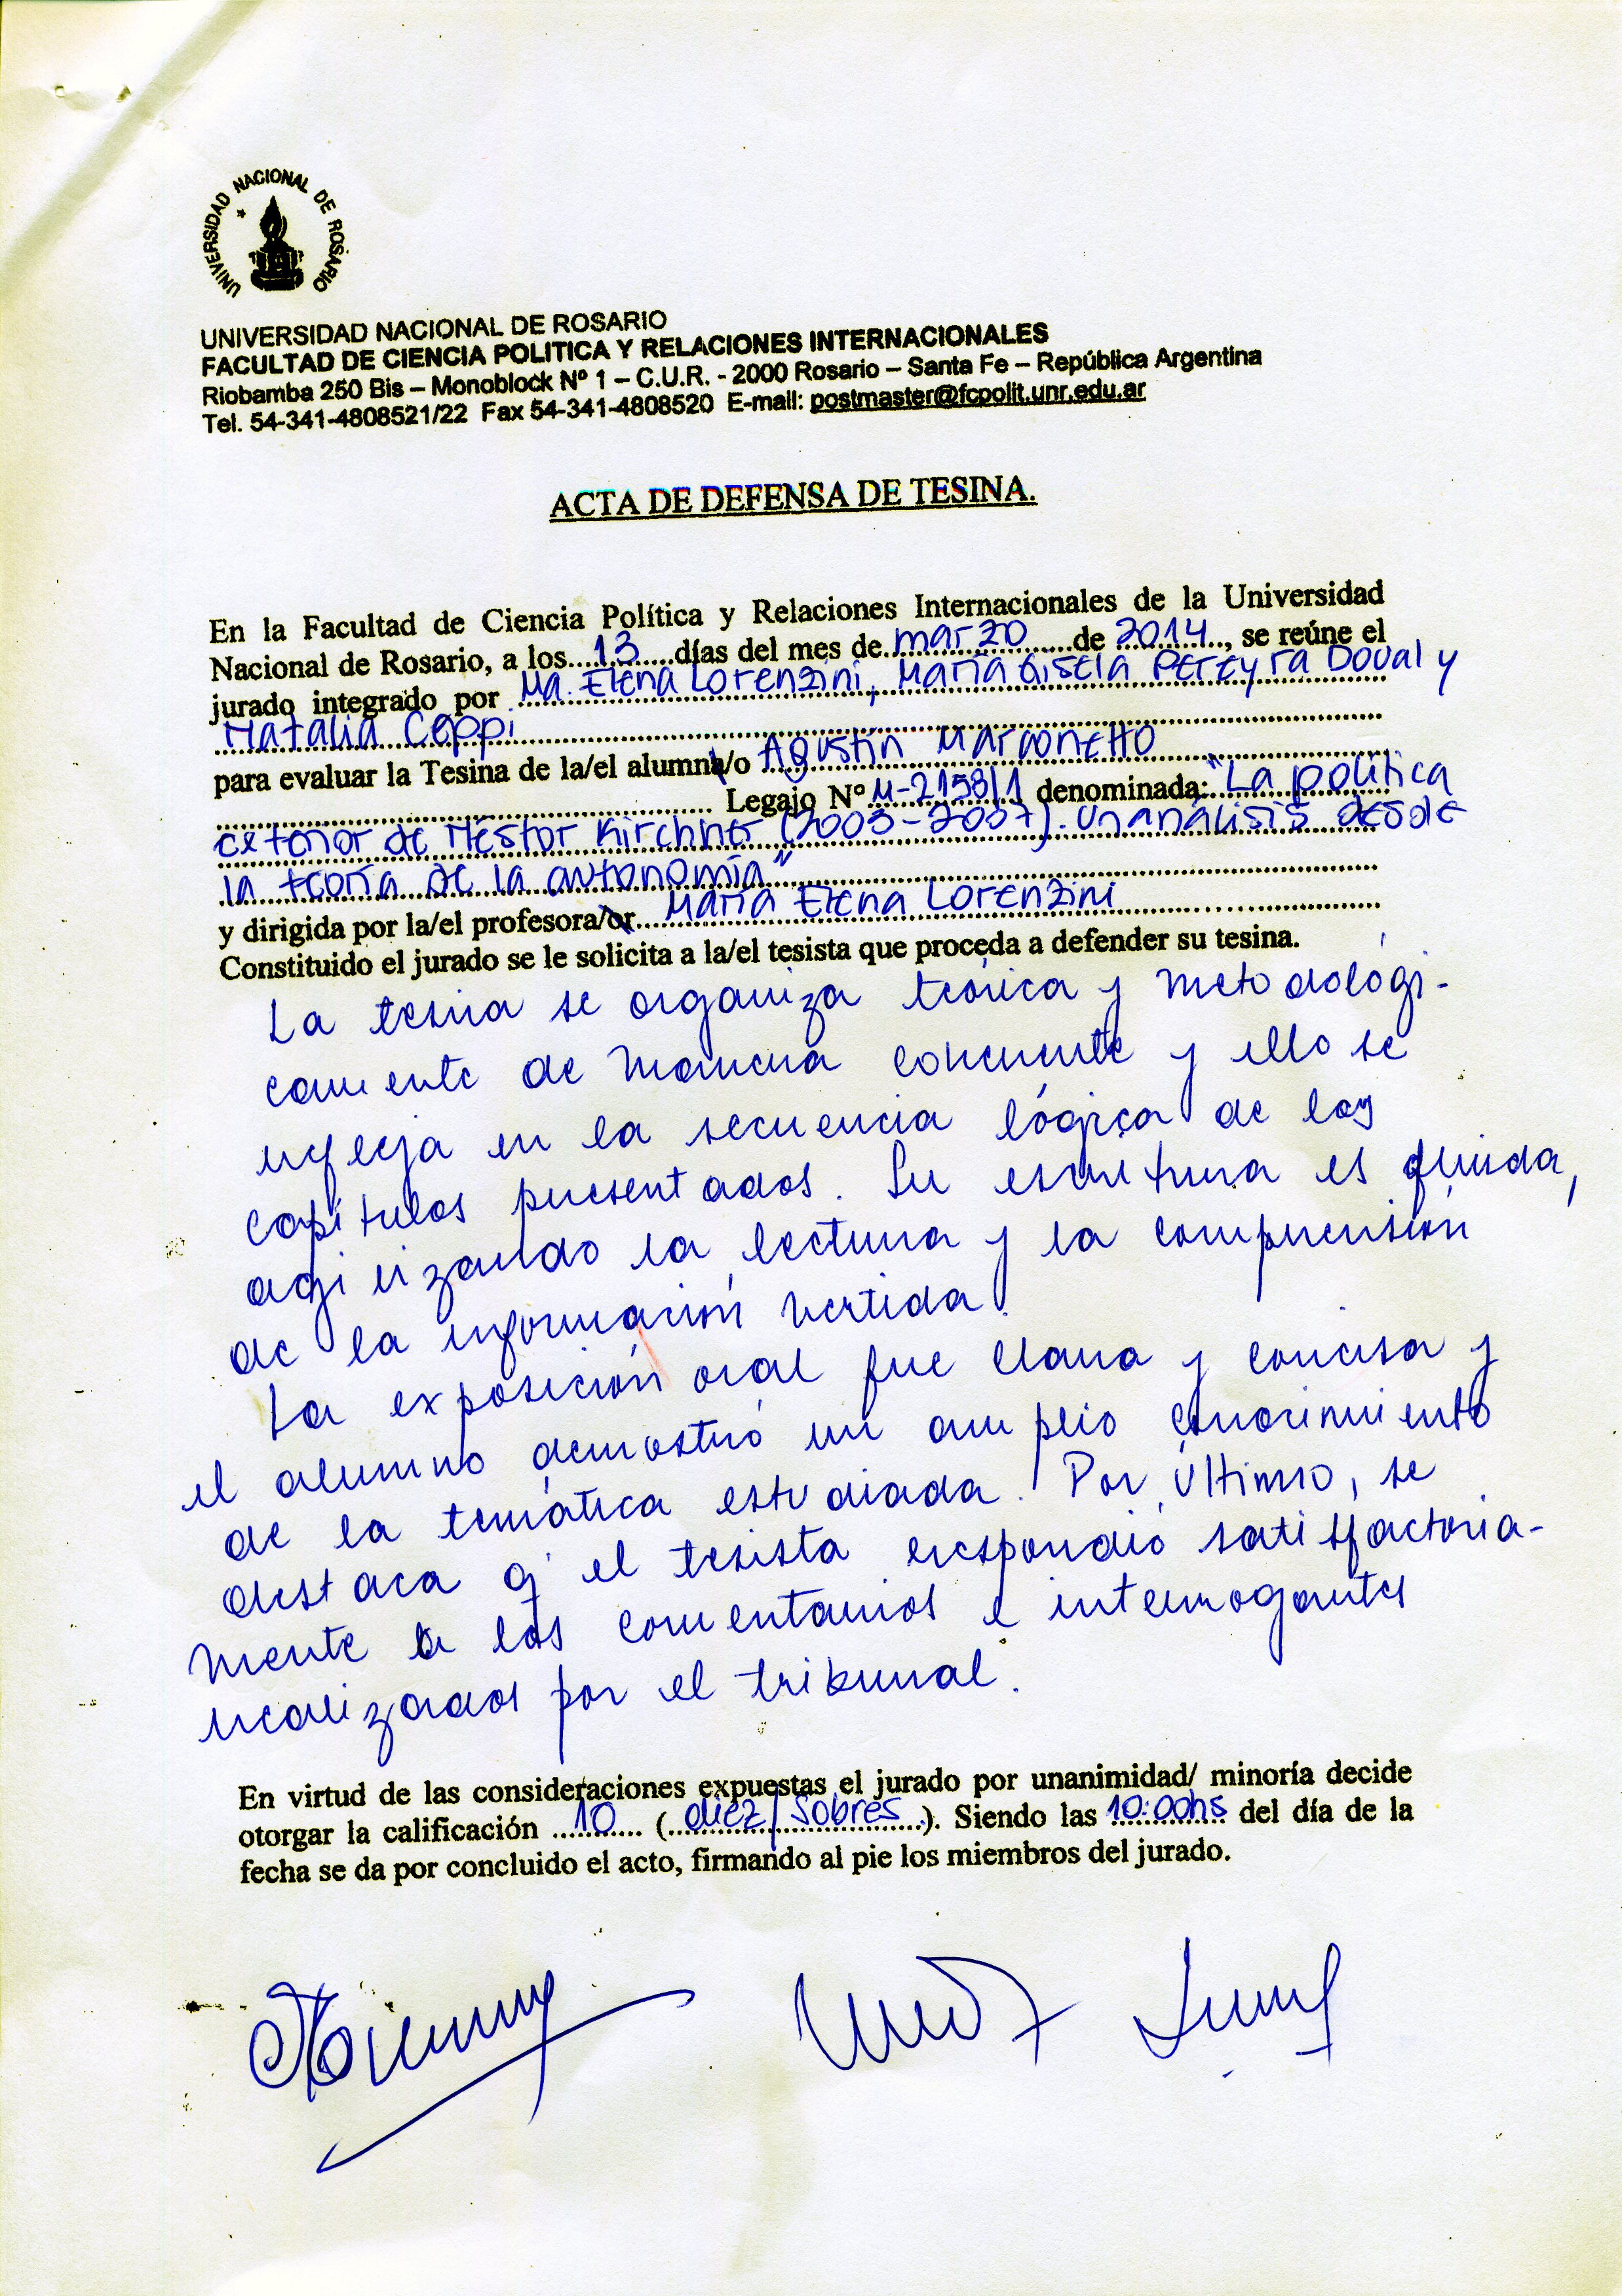 UNIVERSIDAD NACIONAL DE ROSARIO
UNIVERSIDAD NACIONAL DE ROSARIO
FACULTAD DE CIENCIA POLITICA Y RELACIONES INTERNACIONALES
Riobamba 250 Bis – Monoblock Nº 1 – C.U.R. - 2000 Rosario – Santa Fe – República Argentina
Tel. 54-341-4808521/22 Fax 54-341-4808520 E-mail: postmaster@fcpolit.unr.edu.ar
ACTA DE DEFENSA DE TESINA.
En la Facultad de Ciencia Política y Relaciones Internacionales de la Universidad
Nacional de Rosario, a los 13 días del mes de marzo de 2014, se reúne el
jurado integrado por Ma. Elena Lorenzini, María Gisela Pereyra Doval y
Natalia Ceppi
para evaluar la Tesina de la/el alumna/o Agustín Marconetto
Legajo Nº M-2158/1 denominada: "La política
exterior de Néstor Kirchner (2003-2007). Un análisis desde
la teoría de la autonomía"
y dirigida por la/el profesora/or María Elena Lorenzini
Constituido el jurado se le solicita a la/el tesista que proceda a defender su tesina.
La tesina se organiza teórica y metodologi-
camente de manera coherente y ello se
refleja en la secuencia lógica de los
capítulos presentados. Su escritura es fluida,
agilizando la lectura y la comprensión
de la información vertida.
La exposición oral fue clara y concisa y
el alumno demostró un amplio conocimiento
de la temática estudiada. Por último, se
destaca q' el tesista respondió satisfactoria-
mente a los comentarios e interrogantes
realizados por el tribunal.
En virtud de las consideraciones expuestas el jurado por unanimidad/ minoría decide
otorgar la calificación 10 (diez/Sobres.). Siendo las 10:00hs del día de la
fecha se da por concluido el acto, firmando al pie los miembros del jurado.